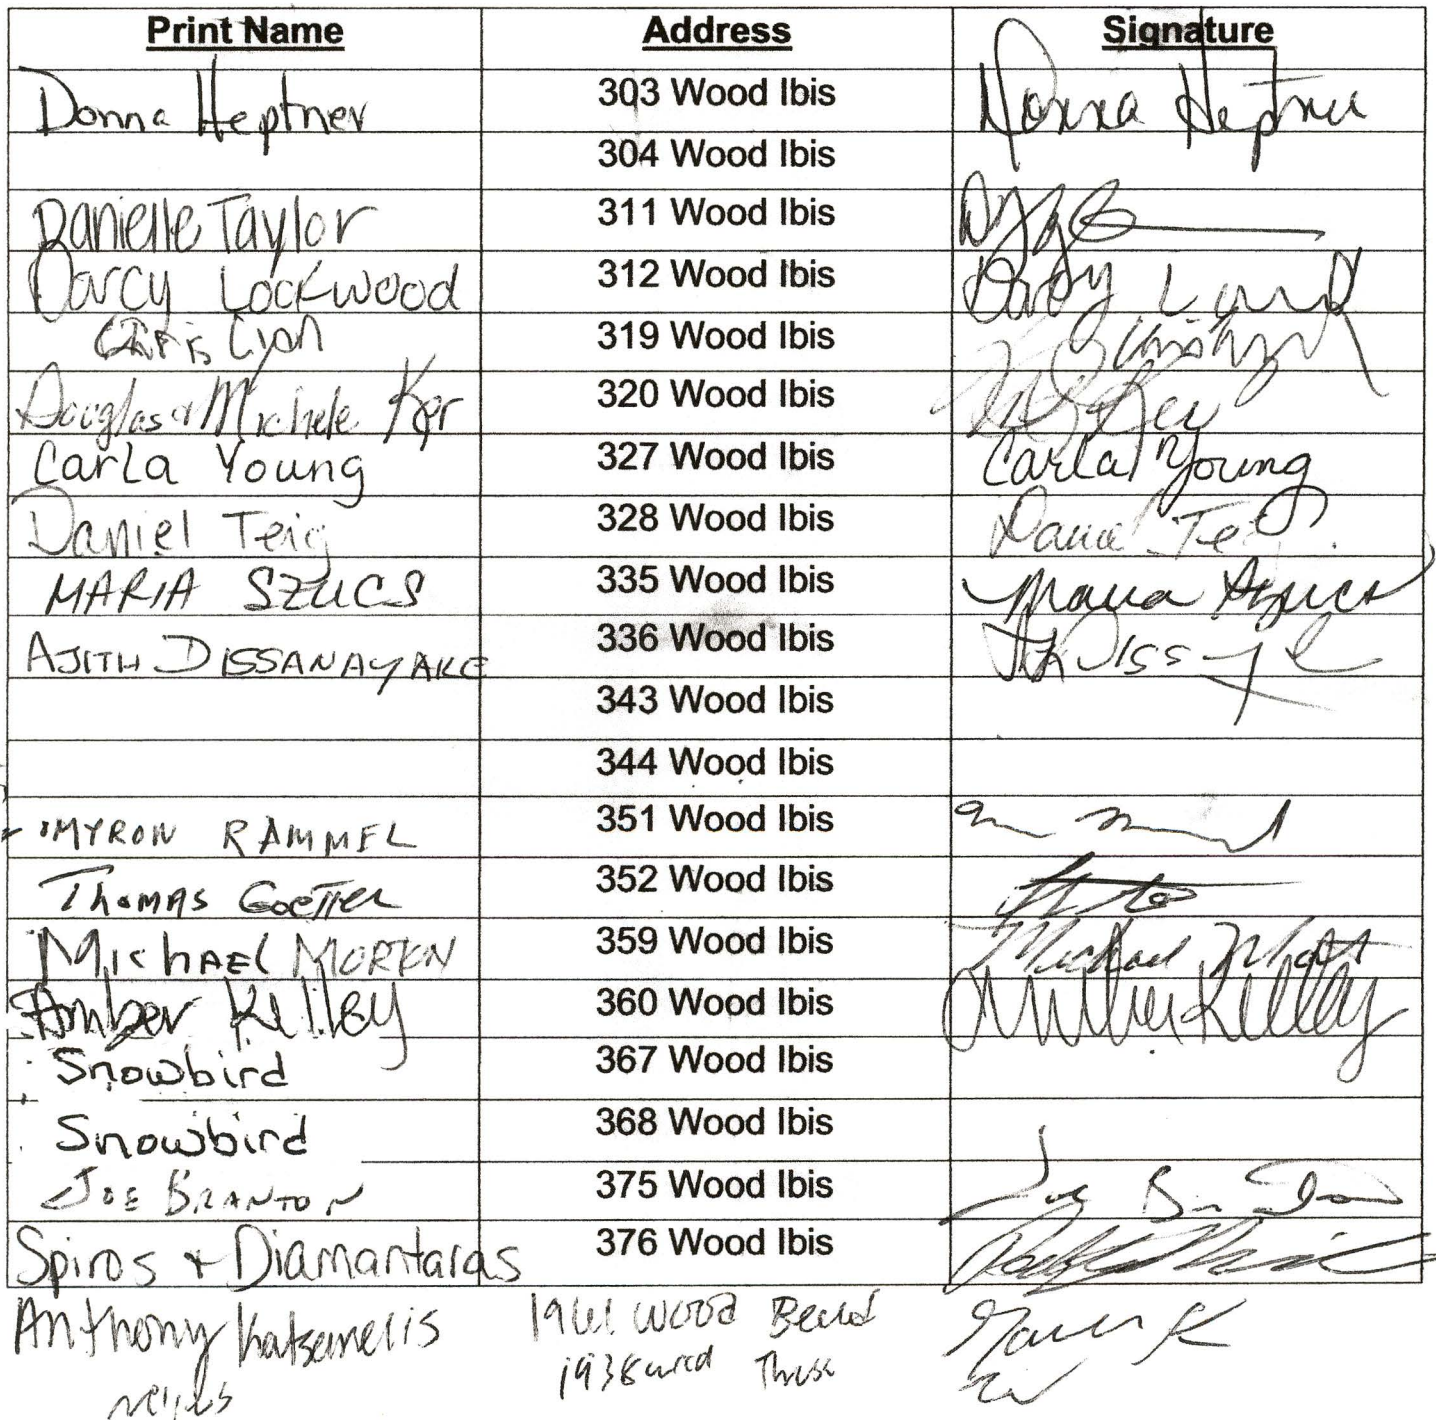 Print Name Address Signature
Donna Heptner 303 Wood Ibis Donna Heptner
304 Wood Ibis
Danielle Taylor 311 Wood Ibis
Darcy Lockwood 312 Wood Ibis Darcy
Chris Lyon 319 Wood Ibis
Douglas & Michele Kerr 320 Wood Ibis
Carla Young 327 Wood Ibis Carla Young
Daniel Teig 328 Wood Ibis Daniel Teig
MARIA SZUCS 335 Wood Ibis Maria Szucs
AJITH DISSANAYAKE 336 Wood Ibis
343 Wood Ibis
344 Wood Ibis
MYRON RAMMEL 351 Wood Ibis
THOMAS GOETTEL 352 Wood Ibis
MICHAEL 359 Wood Ibis Michael
Amber Kelley 360 Wood Ibis Amber Kelley
Snowbird 367 Wood Ibis
Snowbird 368 Wood Ibis
JOE BRANTON 375 Wood Ibis Joe
Spiros + Diamantaras 376 Wood Ibis
Anthony Katsamelis Wood